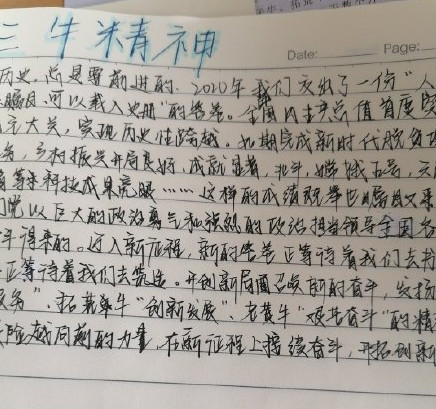 三牛精神
Date:
Page:
历史,总是要前进的。2020年我们交出了一份"人
瞩目、可以载入史册"的答卷。全国民生产总值首度突
大关,实现历史性跨越。如期完成新时代脱贫攻
务,乡村振兴开局良好,成就显著,北斗,嫦娥五号,天
等科技成果亮眼……这样的成绩观举世瞩目又来
以巨大的政治勇气和强烈的政治担当领导全国各
斗得来的。迈入新征程,新的答卷正等待着我们去书
正等待着我们去铸造。开创新局面召唤新的奋斗,发扬
"、拓荒牛"创新发展"、老黄牛"艰苦奋斗"的精
险越向前的力量,在新征程上接续奋斗,开拓创新